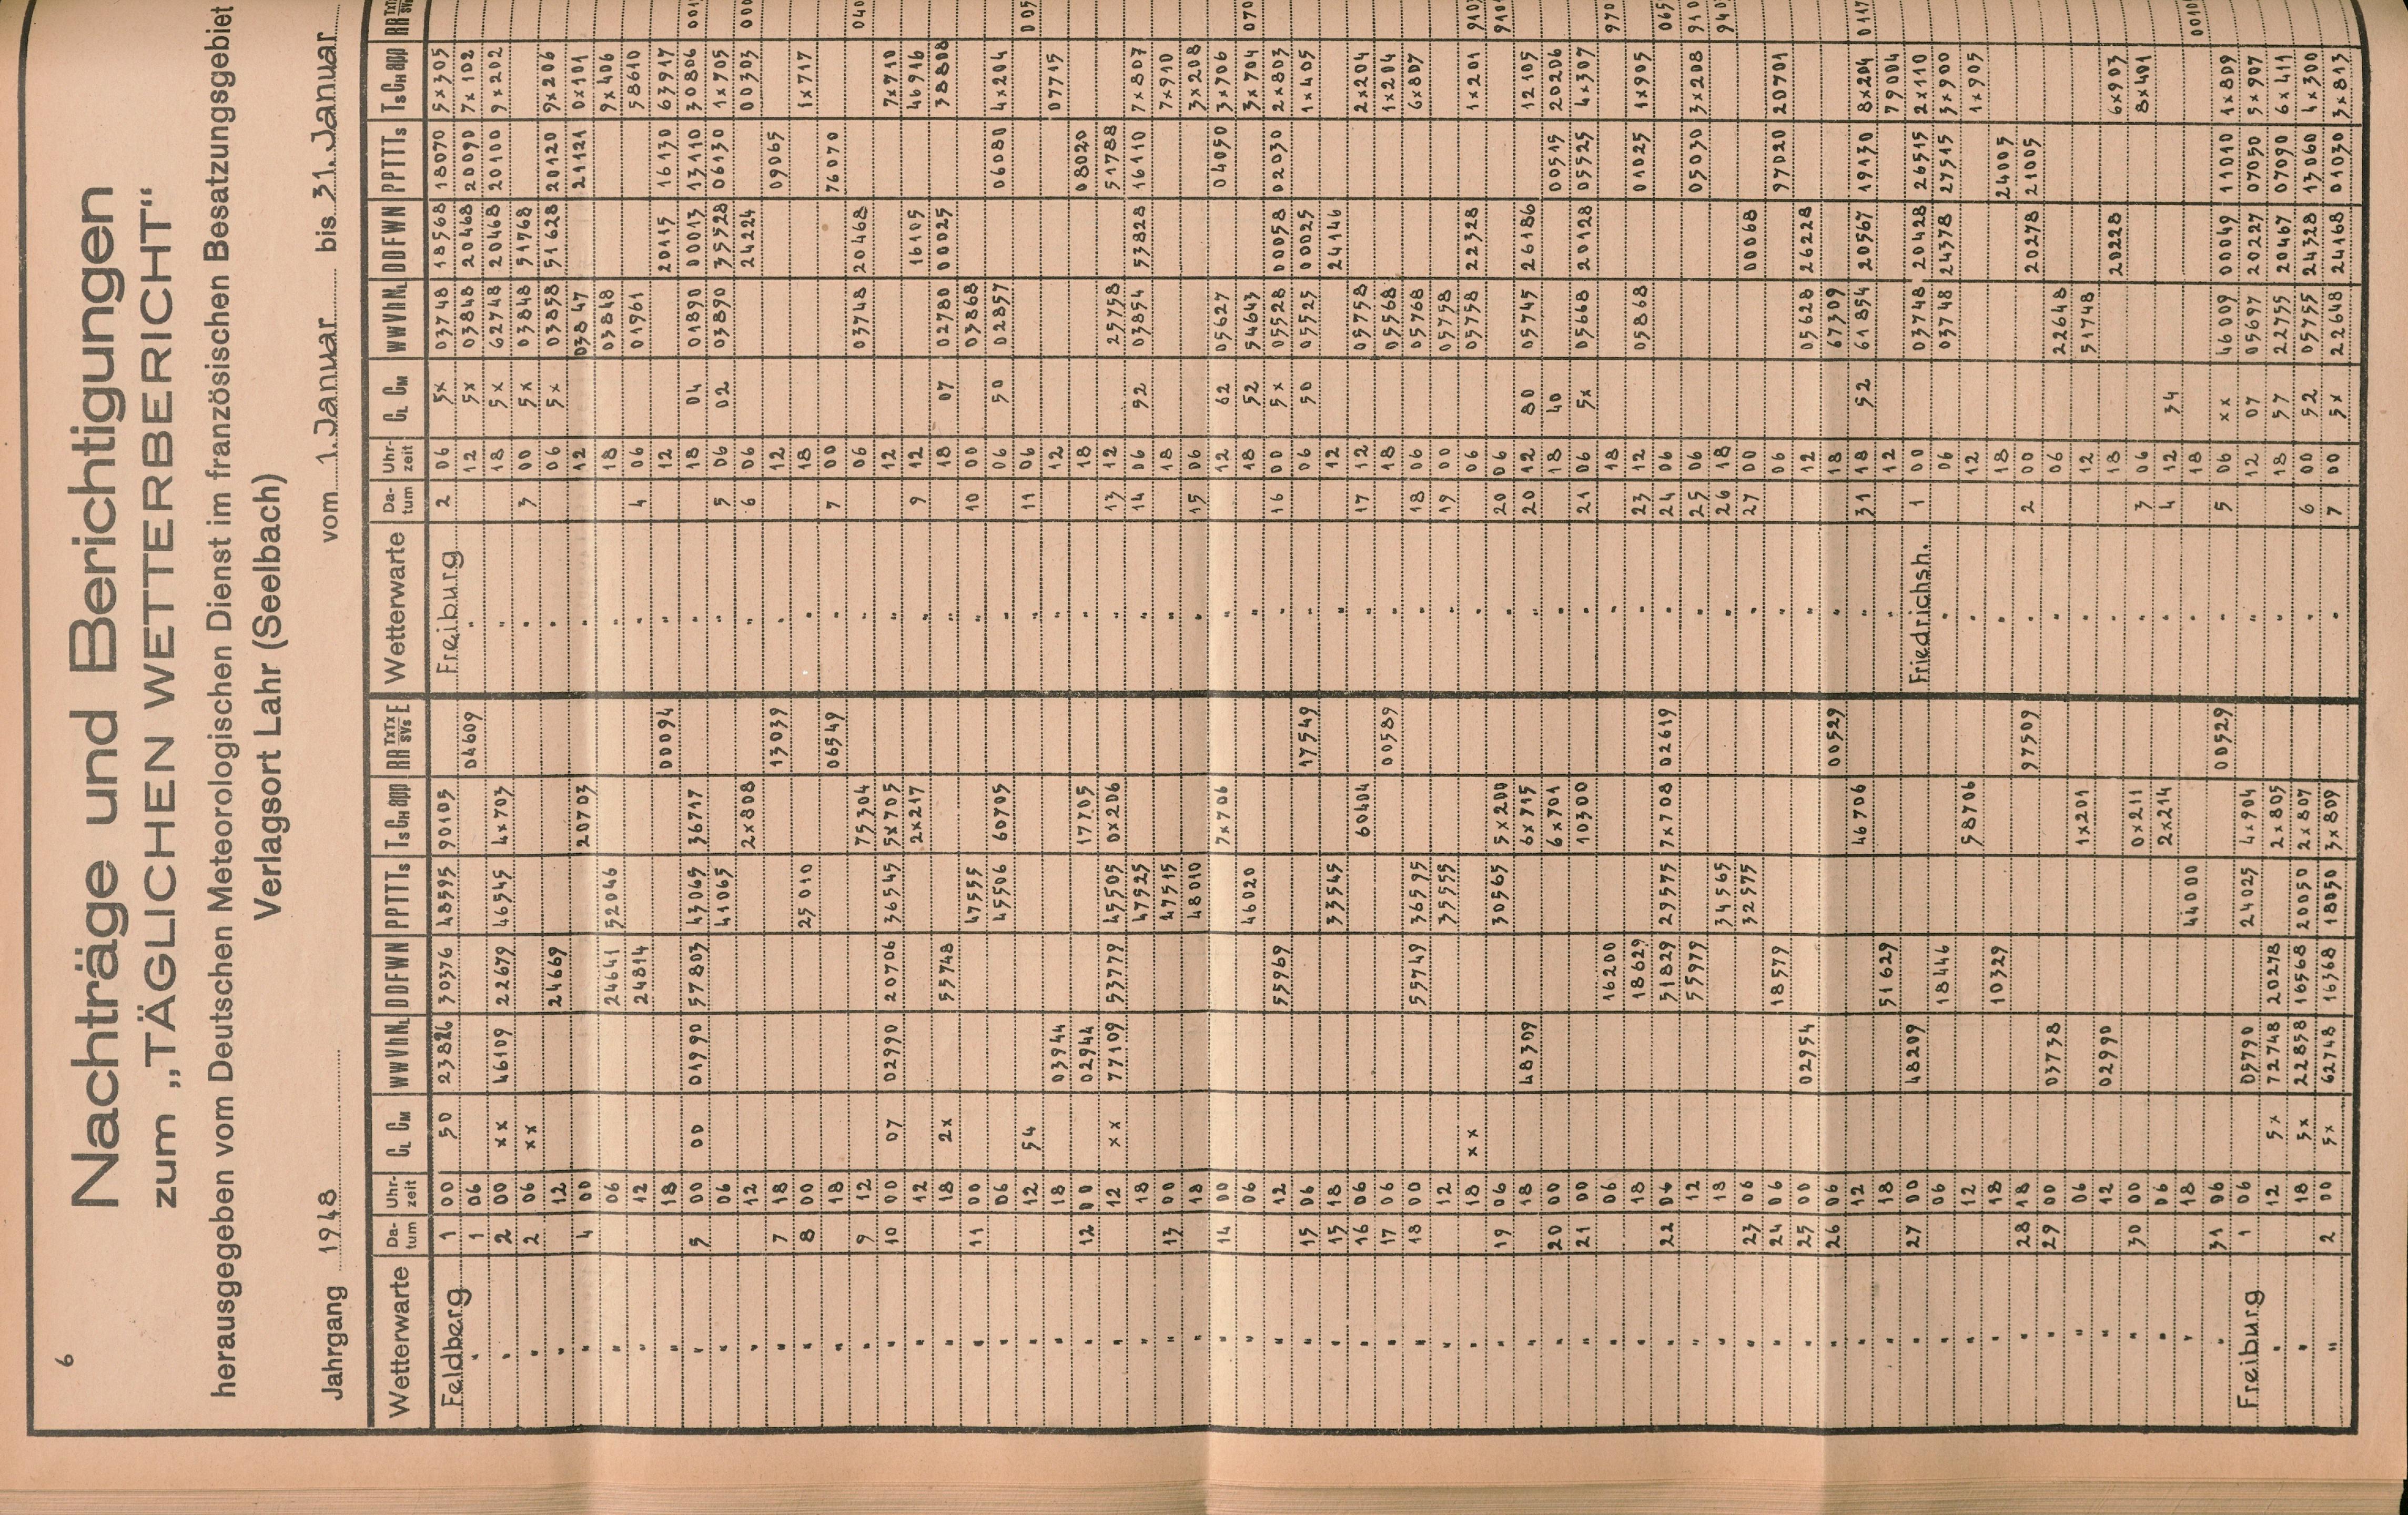 6
Nachträge und Berichtigungen
zum „TÄGLICHEN WETTERBERICHT“
herausgegeben vom Deutschen Meteorologischen Dienst im französischen Besatzungsgebiet
Verlagsort Lahr (Seelbach)
Jahrgang 1948 vom 1. Januar bis 31. Januar
Wetterwarte Da-tum Uhr-zeit CL CM WWVhNL DDFWN PPTTTs TsCHapp RR TxTx/SVs E Wetterwarte Da-tum Uhr-zeit CL CM WWVhNL DDFWN PPTTTs TsCHapp RR
Feldberg 1 00 50 23826 30376 48595 90105 Freiburg 2 06 5x 03748 18568 18070 5x305
" 1 06 04609 " 12 5x 03848 20468 20090 7x102
" 2 00 xx 46109 22679 46545 4x703 " 18 5x 62748 20468 20100 9x202
" 2 06 xx " 3 00 5x 03848 51768
" 12 24669 " 06 5x 03858 51628 20120 9x206
" 4 00 20703 " 12 03847 21121 0x101
" 06 24641 52046 " 18 03848 9x406
" 12 24814 " 4 06 01961 58610
" 18 00094 " 12 20115 16130 63917
" 5 00 00 01990 57803 43065 36717 " 18 04 01890 00013 13110 30806 001
" 06 41065 " 5 06 02 03890 35528 06130 1x705
" 12 2x808 " 6 06 24224 00303 000
" 7 18 13039 " 12 09065
" 8 00 25010 " 18 1x717
" 18 06549 " 7 00 76070
" 9 12 75304 " 06 03748 20468 040
" 10 00 07 02990 20706 36545 5x705 " 12 7x910
" 12 2x217 " 9 12 16105 46916
" 18 2x 55748 " 18 07 02780 00025 38808
" 11 00 47555 " 10 00 03868
" 06 45506 60705 " 06 50 02857 06080 4x204
" 12 54 " 11 06 005
" 18 03944 " 12 07715
" 12 00 02944 17705 " 18 08020
" 12 xx 77109 53779 45505 0x206 " 13 12 25758 51788
" 18 47525 " 14 06 52 03854 53828 16110 7x807
" 13 00 47515 " 18 7x910
" 18 48010 " 15 06 3x208
" 14 00 7x706 " 12 62 05627 04050 3x706
" 06 46020 " 18 52 54643 3x704 070
" 12 55969 " 16 00 5x 05528 00058 02030 2x803
" 15 06 17549 " 06 50 05525 00025 1x405
" 15 18 33545 " 12 24146
" 16 06 60404 " 17 12 05758 2x204
" 17 06 00589 " 18 05568 1x204
" 18 00 55749 36595 " 18 06 05768 6x807
" 12 35555 " 19 00 05758
" 18 xx " 06 05758 22328 1x201 910
" 19 06 30565 5x200 " 20 06 910
" 18 48309 6x715 " 20 12 80 05745 26186 12105
" 20 00 6x701 " 18 40 00515 20206
" 21 00 10300 " 21 06 5x 05668 20128 05525 4x307
" 06 16200 " 18 970
" 18 18629 " 23 12 05868 01025 1x905
" 22 06 51829 29575 7x708 02619 " 24 06 065
" 12 55979 " 25 06 05030 3x208 910
" 18 34565 " 26 18 940
" 23 06 32575 " 27 00 00068
" 24 06 18579 " 06 97020 20701
" 25 00 02954 " 12 05628 26228
" 26 06 00529 " 18 67309
" 12 46706 " 31 18 52 61854 20567 19130 8x204 0117
" 18 51629 " 12 79004
" 27 00 48209 Friedrichsh. 1 00 03748 20428 26515 2x110
" 06 18446 " 06 03748 24378 27515 3x900
" 12 58706 " 12 1x905
" 18 10329 " 18 24005
" 28 18 97509 " 2 00 20278 21005
" 29 00 03738 " 06 22648
" 06 1x201 " 12 51748
" 12 02990 " 18 20228 6x903
" 30 00 0x211 " 3 06 8x401
" 06 2x214 " 4 12 34
" 18 44000 " 18 0010
" 31 06 00529 " 5 06 xx 46009 00049 11010 1x809
Freiburg 1 06 05790 24025 4x904 " 12 07 05697 20227 07050 5x907
" 12 5x 72748 20278 2x805 " 18 57 22755 20467 07090 6x411
" 18 5x 22858 16568 20050 2x807 " 6 00 52 05755 24328 13060 4x300
" 2 00 5x 62748 16368 18050 3x809 " 7 00 5x 22648 24168 01030 3x813